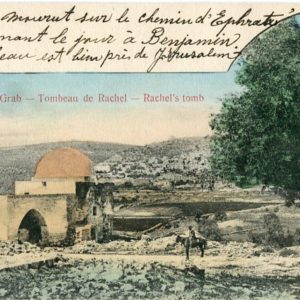 mourut sur le chemin d'Ephrata
nant le jour à Benjamin
eau est bien près de Jérusalem
Grab — Tombeau de Rachel — Rachel's tomb